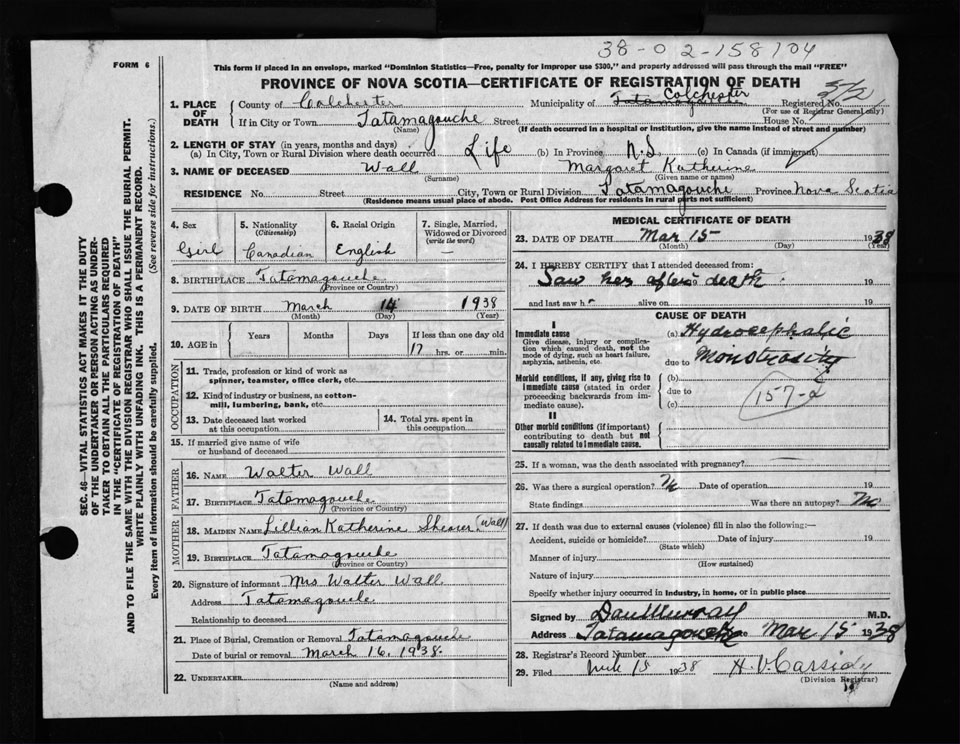 38-02-158104
FORM 6
This form if placed in an envelope, marked "Dominion Statistics—Free, penalty for improper use $300," and properly addressed will pass through the mail "FREE"
PROVINCE OF NOVA SCOTIA—CERTIFICATE OF REGISTRATION OF DEATH
1. PLACE OF DEATH County of Colchester Municipality of Tatamagouche Colchester Registered No.
(For use of Registrar General only)
If in City or Town Tatamagouche Street House No.
(Name) (If death occurred in a hospital or institution, give the name instead of street and number)
2. LENGTH OF STAY (in years, months and days)
(a) In City, Town or Rural Division where death occurred Life (b) In Province N.S. (c) In Canada (if immigrant)
3. NAME OF DECEASED Wall Margaret Katherine
(Surname) (Given name or names)
RESIDENCE No. Street City, Town or Rural Division Tatamagouche Province Nova Scotia
(Residence means usual place of abode. Post Office Address for residents in rural parts not sufficient)
4. Sex 5. Nationality (Citizenship) 6. Racial Origin 7. Single, Married, Widowed or Divorced (write the word)
Girl Canadian English —
8. BIRTHPLACE Tatamagouche
(Province or Country)
9. DATE OF BIRTH March 14 1938
(Month) (Day) (Year)
10. AGE in Years Months Days If less than one day old
17 hrs. or min.
OCCUPATION
11. Trade, profession or kind of work as spinner, teamster, office clerk, etc.
12. Kind of industry or business, as cotton-mill, lumbering, bank, etc.
13. Date deceased last worked at this occupation 14. Total yrs. spent in this occupation
15. If married give name of wife or husband of deceased
FATHER
16. NAME Walter Wall
17. BIRTHPLACE Tatamagouche
(Province or Country)
MOTHER
18. MAIDEN NAME Lillian Katherine Shearer (Wall)
19. BIRTHPLACE Tatamagouche
(Province or Country)
20. Signature of informant Mrs Walter Wall
Address Tatamagouche
Relationship to deceased
21. Place of Burial, Cremation or Removal Tatamagouche
Date of burial or removal March 16, 1938.
22. UNDERTAKER
(Name and address)
MEDICAL CERTIFICATE OF DEATH
23. DATE OF DEATH Mar 15 1938
(Month) (Day) (Year)
24. I HEREBY CERTIFY that I attended deceased from:
Saw her after death 19
and last saw h alive on 19
CAUSE OF DEATH
I
Immediate cause (a) Hydrocephalic
Give disease, injury or complication which caused death, not the mode of dying, such as heart failure, asphyxia, asthenia, etc.
due to Monstrosity
Morbid conditions, if any, giving rise to immediate cause (stated in order proceeding backwards from immediate cause).
(b)
due to
(c)
157-a
II
Other morbid conditions (if important) contributing to death but not causally related to immediate cause.
25. If a woman, was the death associated with pregnancy?
26. Was there a surgical operation? No Date of operation 19
State findings Was there an autopsy? No
27. If death was due to external causes (violence) fill in also the following:—
Accident, suicide or homicide? Date of injury 19
(State which)
Manner of injury
(How sustained)
Nature of injury
Specify whether injury occurred in industry, in home, or in public place
Signed by Dan Murray M.D.
Address Tatamagouche Date Mar 15 1938
28. Registrar's Record Number
29. Filed 15 1938 H.V. Cassidy
(Division Registrar)
SEC. 46—VITAL STATISTICS ACT MAKES IT THE DUTY
OF THE UNDERTAKER OR PERSON ACTING AS UNDER-
TAKER TO OBTAIN ALL THE PARTICULARS REQUIRED
IN THE "CERTIFICATE OF REGISTRATION OF DEATH"
AND TO FILE THE SAME WITH THE DIVISION REGISTRAR WHO SHALL ISSUE THE BURIAL PERMIT.
WRITE PLAINLY WITH UNFADING INK. THIS IS A PERMANENT RECORD.
Every item of information should be carefully supplied. (See reverse side for instructions.)